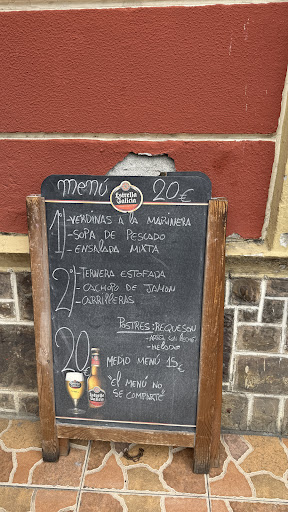 menú 20€
Estrella
Galicia
1º -VERDINAS A LA MARINERA
-SOPA DE PESCADO
-ENSALADA MIXTA
2º -TERNERA ESTOFADA
-CACHOPO DE JAMON
-CARRILLERAS
POSTRES: REQUESON
-ARROZ CON LECHE
-HELADO
20€
MEDIO MENÚ 15€
"EL MENÚ NO
SE COMPARTE"